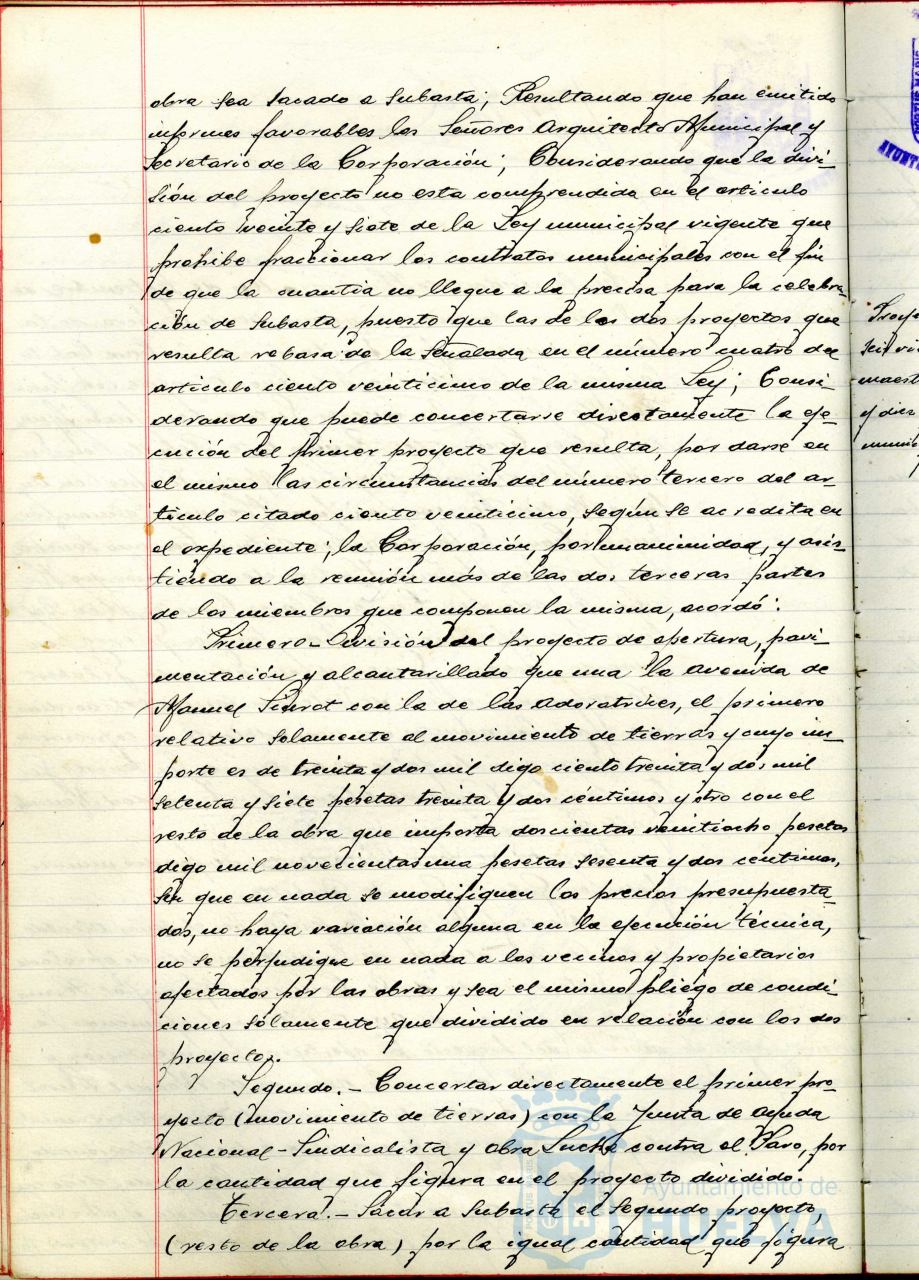 obra sea sacado a subasta; Resultando que han emitido
informes favorables los Señores Arquitecto Municipal y
Secretario de la Corporación; Considerando que la divi-
sión del proyecto no esta comprendida en el articulo
ciento veinte y siete de la Ley municipal vigente que
prohibe fraccionar los contratos municipales con el fin
de que la cuantia no llegue a la precisa para la celebra-
ción de subasta, puesto que las de los dos proyectos que
resulta rebasa de la señalada en el número cuatro del
articulo ciento veinticinco de la misma Ley; Consi-
derando que puede concertarse directamente la eje-
cución del primer proyecto que resulta, por darse en
el mismo las circunstancias del número tercero del ar-
ticulo citado ciento veinticinco, según se acredita en
el expediente; la Corporación, por unanimidad, y asis-
tiendo a la reunión más de las dos terceras partes
de los miembros que componen la misma, acordó:
Primero- División del proyecto de apertura, pavi-
mentación y alcantarillado que una la avenida de
Manuel Siurot con la de las Adoratrices, el primero
relativo solamente al movimiento de tierras y cuyo im-
porte es de treinta y dos mil digo ciento treinta y dos mil
setenta y siete pesetas treinta y dos céntimos y otro con el
resto de la obra que importa doscientas veintiocho pesetas
digo mil novecientas una pesetas sesenta y dos centimos,
sin que en nada se modifiquen los precios presupuesta-
dos, no haya variación alguna en la ejecución técnica,
no se perjudique en nada a los vecinos y propietarios
afectados por las obras y sea el mismo pliego de condi-
ciones sólamente que dividido en relación con los dos
proyectos.
Segundo.- Concertar directamente el primer pro-
yecto (movimiento de tierras) con la Junta de Ayuda
Nacional-Sindicalista y Obra Lucha contra el Paro, por
la cantidad que figura en el proyecto dividido.
Tercera.- Sacar a subasta el segundo proyecto,
(resto de la obra) por la igual cantidad que figura
Proye
maest
y dies
munic
AYUNT
Ayuntamiento de
HUELVA